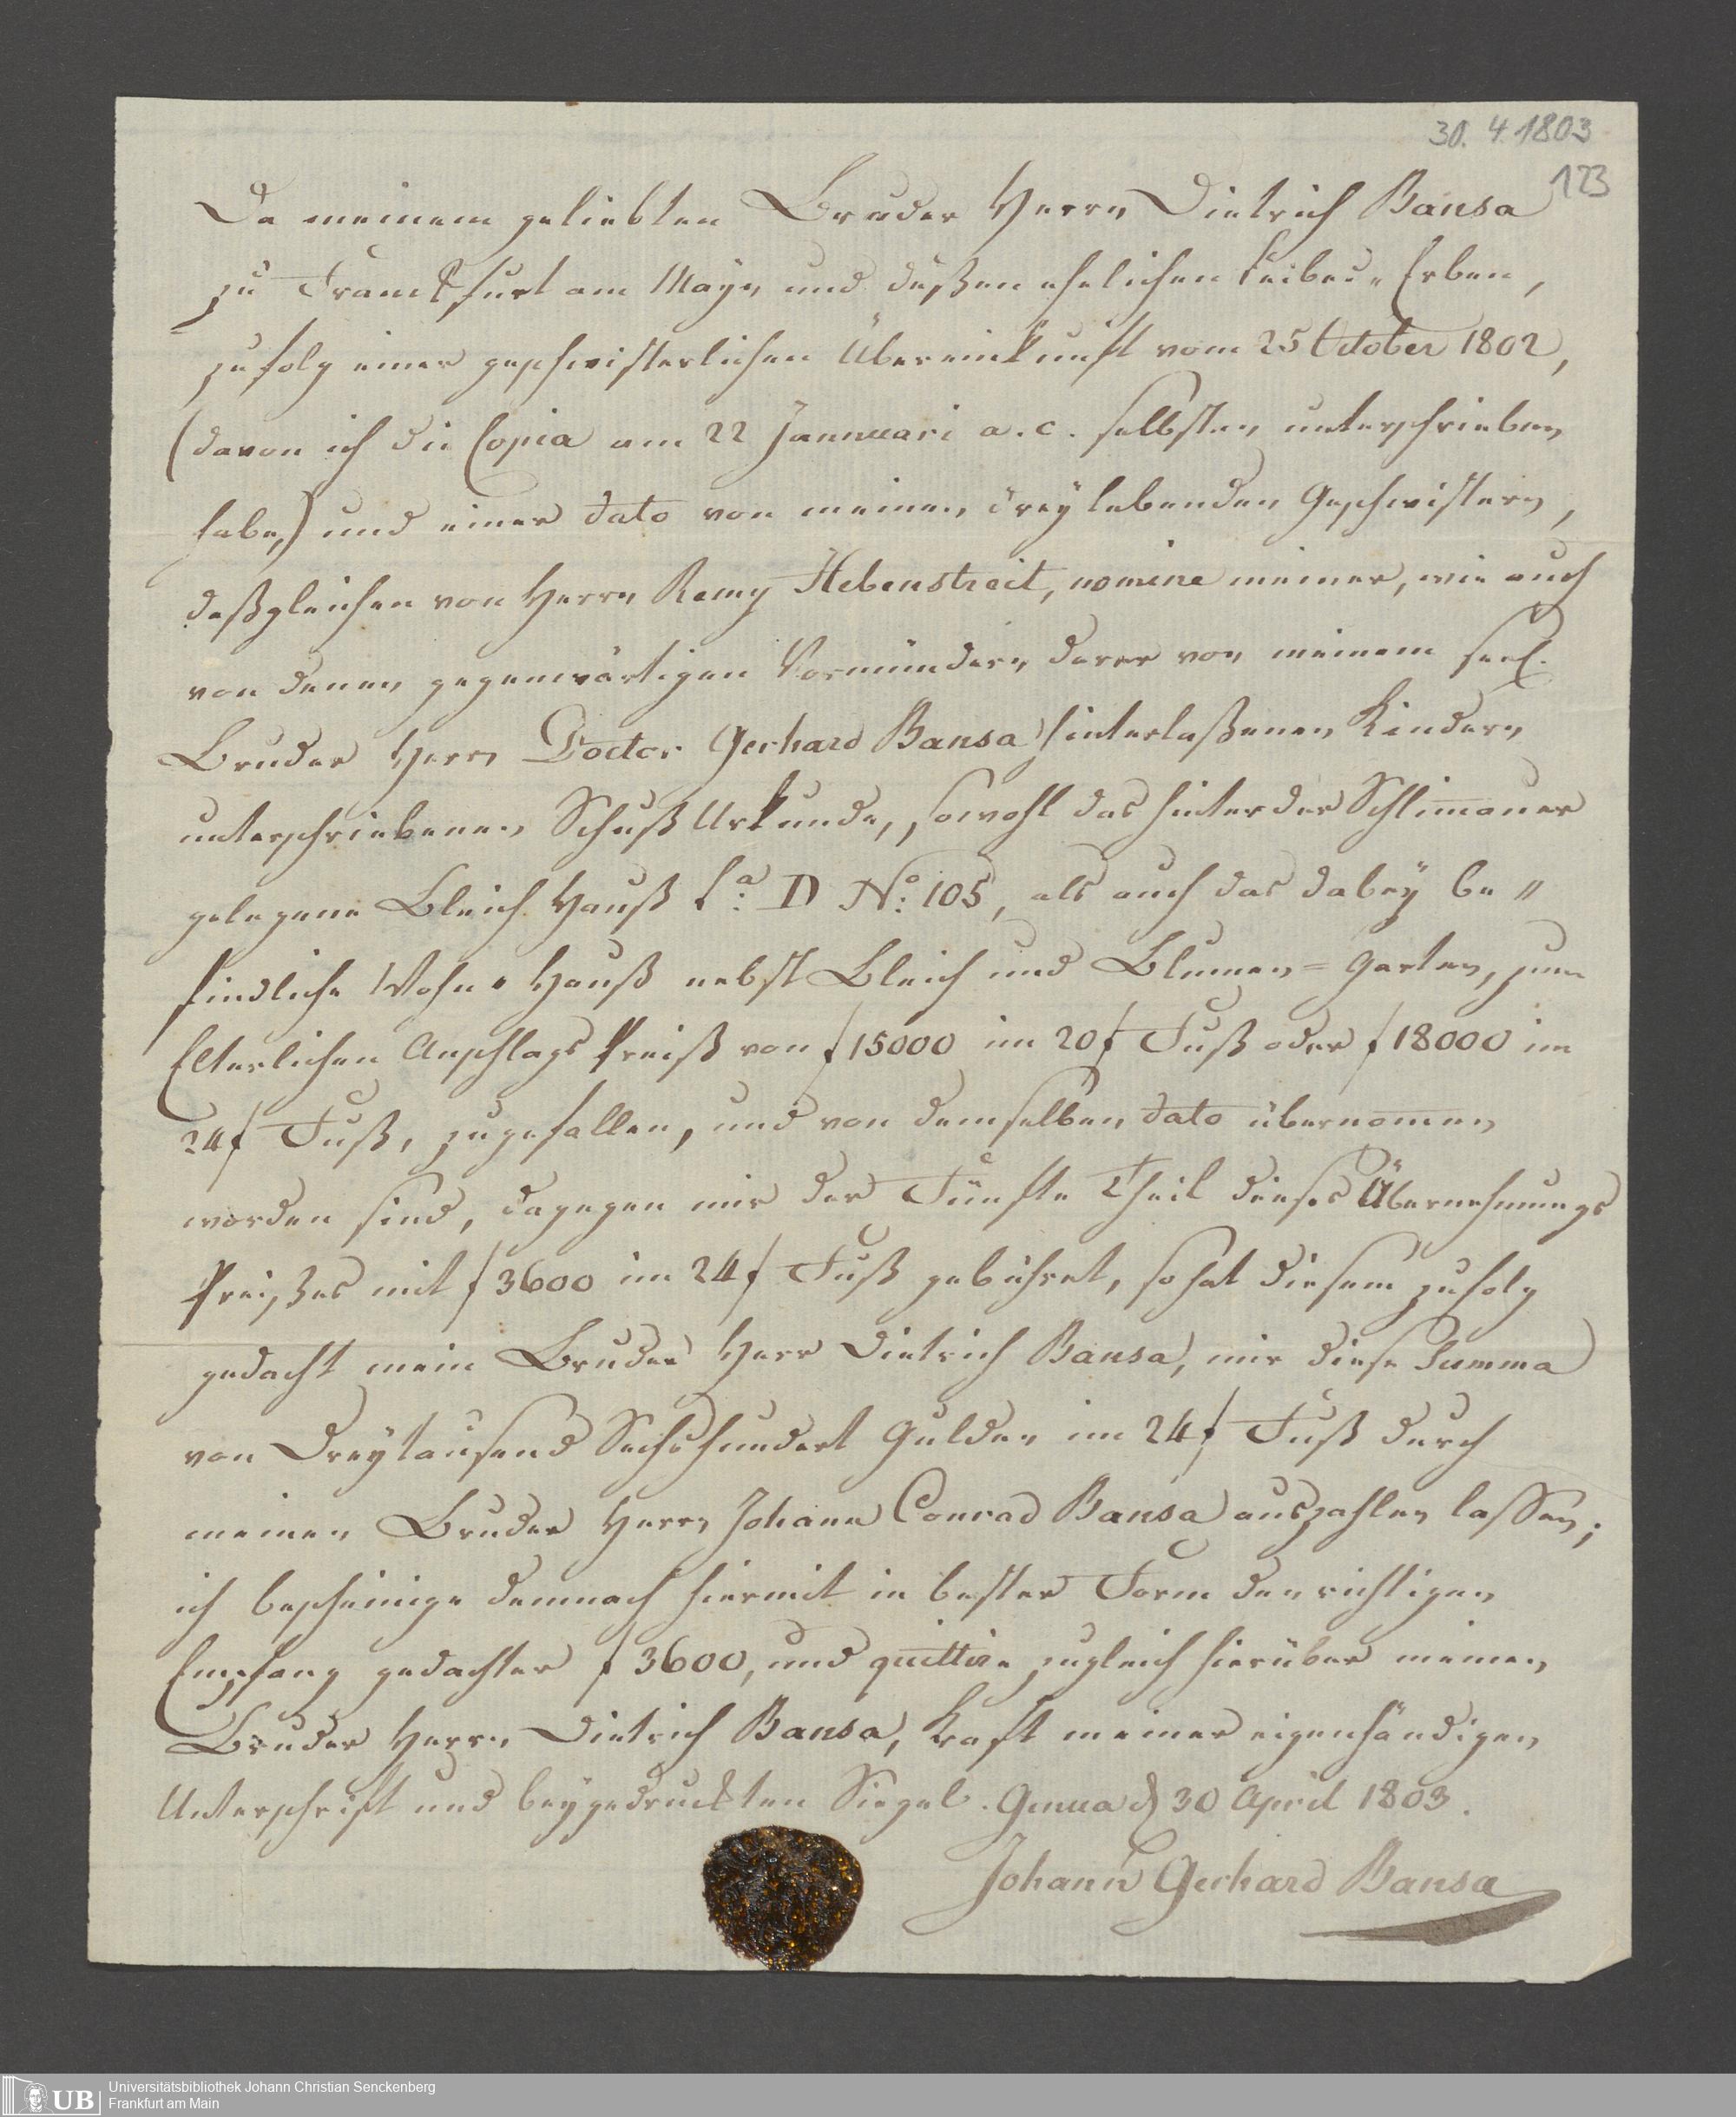 30. 4. 1803
123
Da meinem geliebten Bruder Herrn Dietrich Bansa
zu Franckfurt am Mayn und deßen ehelichen Leibes-Erben,
zufolg einer geschwisterlichen Übereinkunft vom 25 October 1802,
(davon ich die Copia am 22 Jannuari a. c. selbsten unterschrieben
habe,) und einer dato von meinen drey lebenden Geschwistern,
deßgleichen von Herrn Remy Hebenstreit, nomine meiner, wie auch
von denen gegenwärtigen Vormündern derer von meinem seel.
Bruder Herrn Doctor Gerhard Bansa hinterlaßenen Kindern
unterschriebenen Urkunde, sowohl das hinter der Schlimauer
gelegene Bleich Hauß La. D No: 105, als auch das dabey be=
findliche Wohn-Hauß nebst Bleich und Blumen=Garten, zum
Elterlichen Anschlags Preiß von f 15000 im 20f Fuß oder f 18000 im
24f Fuß, zugefallen, und von demselben dato übernomen
worden sind, dagegen mir der Fünfte Theil dieses Übernehmungs
Preißes mit f 3600 im 24f Fuß gebühret, so hat diesem zufolg
gedacht mein Bruder Herr Dietrich Bansa, mir diese Summa
von Dreytausend Sechshundert Gulden im 24f Fuß durch
meinen Bruder Herrn Johann Conrad Bansa auszahlen lassen;
ich bescheinige demnach hiermit in bester Form den richtigen
Empfang gedachter f 3600, und quittire zugleich hierüber meinen
Bruder Herrn Dietrich Bansa, Kraft meiner eigenhändigen
Unterschrift und beygedruckten Siegel. Genua d 30 April 1803.
Johann Gerhard Bansa
UB
Universitätsbibliothek Johann Christian Senckenberg
Frankfurt am Main